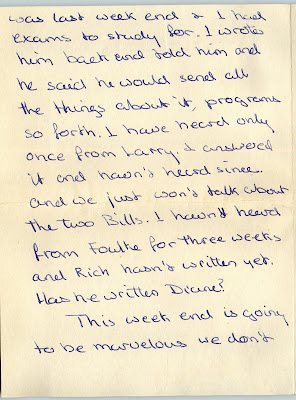 was last week end & I had
exams to study for. I wrote
him back and told him and
he said he would send all
the things about it, programs
so forth. I have heard only
once from Larry. I answered
it and havn't heard since.
And we just won't talk about
the two Bills. I havn't heard
from Foulke for three weeks
and Rich hasn't written yet.
Has he written Diane?
This week end is going
to be marvelous we don't